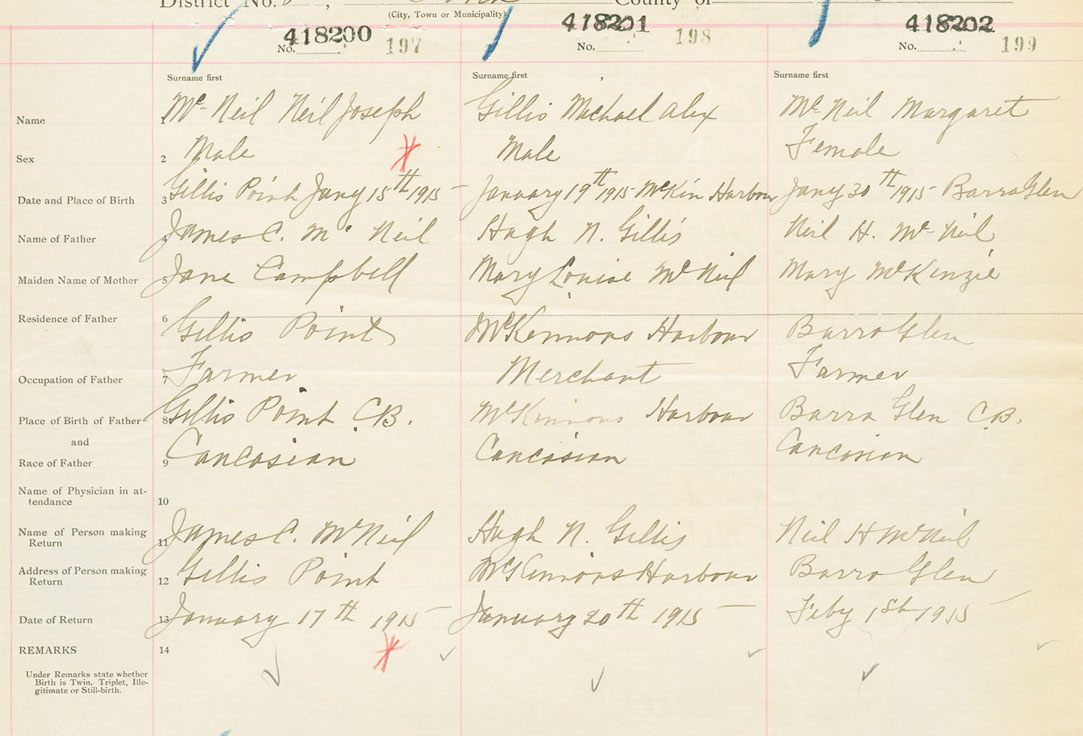 District No.
County of
(City, Town or Municipality)
418200 418201 418202
No. 197 No. 198 No. 199
Surname first Surname first Surname first
Name 1 Mc Neil Neil Joseph Gillis Michael Alex Mc Neil Margaret
Sex 2 Male Male Female
Date and Place of Birth 3 Gillis Point Jany 15th 1915 January 19th 1915 McKin Harbour Jany 30th 1915 Barra Glen
Name of Father James C. Mc Neil Hugh N. Gillis Neil H. Mc Neil
Maiden Name of Mother 5 Jane Campbell Mary Louise McNeil Mary McKenzie
Residence of Father 6 Gillis Point McKinnons Harbour Barra Glen
Occupation of Father 7 Farmer Merchant Farmer
Place of Birth of Father 8 Gillis Point C.B. McKinnons Harbour Barra Glen C.B.
and
Race of Father 9 Cancasian Cancasian Cancasian
Name of Physician in at-
tendance 10
Name of Person making
Return 11 James C. McNeil Hugh N. Gillis Neil H McNeil
Address of Person making
Return 12 Gillis Point McKinnons Harbour Barra Glen
Date of Return 13 January 17th 1915 January 20th 1915 Feby 1st 1915
REMARKS 14
Under Remarks state whether
Birth is Twin, Triplet, Ille-
gitimate or Still-birth.